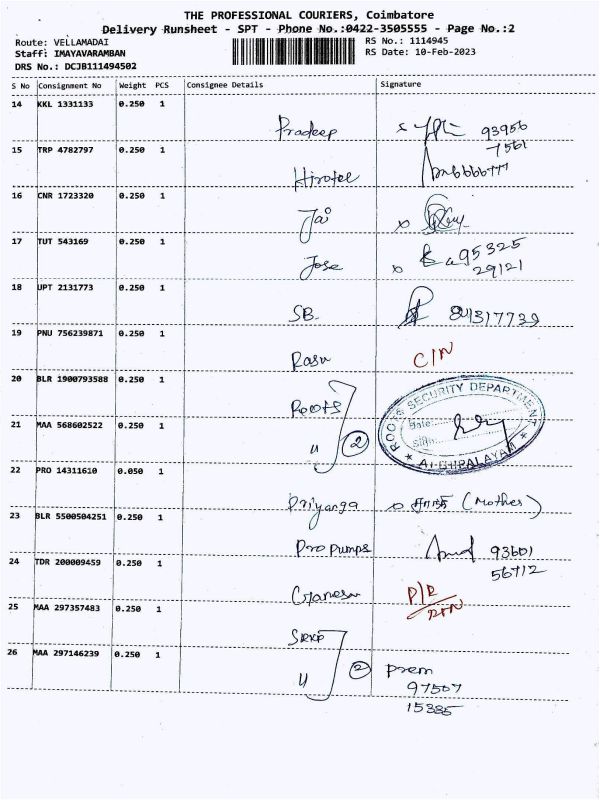 THE PROFESSIONAL COURIERS, Coimbatore
Delivery Runsheet - SPT - Phone No.:0422-3505555 - Page No.:2
Route: VELLAMADAI RS No.: 1114945
Staff: IMAYAVARAMBAN RS Date: 10-Feb-2023
DRS No.: DCJB111494502
S No Consignment No Weight PCS Consignee Details Signature
14 KKL 1331133 0.250 1
Pradeep x 93956
7561
15 TRP 4782797 0.250 1
16 CNR 1723320 0.250 1
Jai x
17 TUT 543169 0.250 1
Jose x 95325
29121
18 UPT 2131773 0.250 1
SB.
19 PNU 756239871 0.250 1
Rasu C/N
20 BLR 1900793588 0.250 1
Roots ROOTS SECURITY DEPARTMENT
21 MAA 568602522 0.250 1
Date:
" 2 Sign:
22 PRO 14311610 0.050 1
Priyanga (Mother)
23 BLR 5500504251 0.250 1
Propumps 93601
56712
24 TDR 200009459 0.250 1
Ganesan
25 MAA 297357483 0.250 1
26 MAA 297146239 0.250 1
" 2 prem
97507
15385